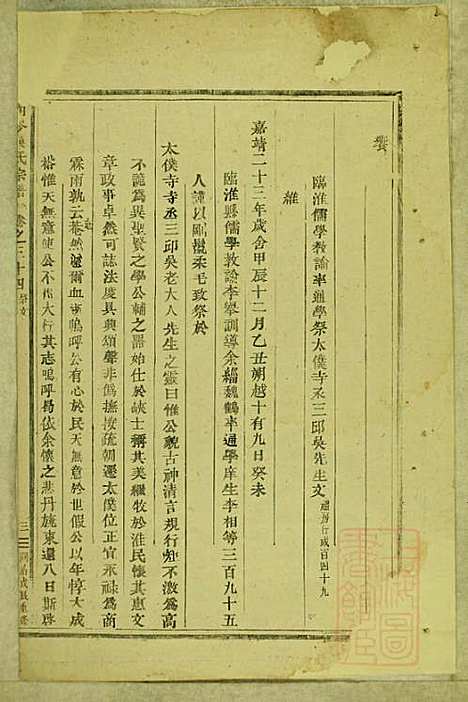 饗
臨淮儒學教諭率通學祭太僕寺丞三邱吳先生文
維
嘉靖二十三年歲舍甲辰十二月乙丑朔越十有九日癸未
臨淮縣儒學教諭李舉訓導余縉魏鶴率通學庠生李相等三百九十五
人謹以剛鬣柔毛致祭於
太僕寺寺丞三邱吳老大人先生之靈曰惟公貌古神清言規行矩不激為高
不詭為異聖賢之學公輔之器始仕於峽士稱其美繼牧於淮民懷其惠文
章政事卓然可誌法度具興頌聲非偽撫按疏朝遷太僕位正宜永祿為商
霖雨孰云菴然灑爾血事嗚呼公有心於民天無意於世假公以年惇大成
裕惟天無意使公不大行其志嗚呼曷依余懷之悲丹旐東還八日斯啓